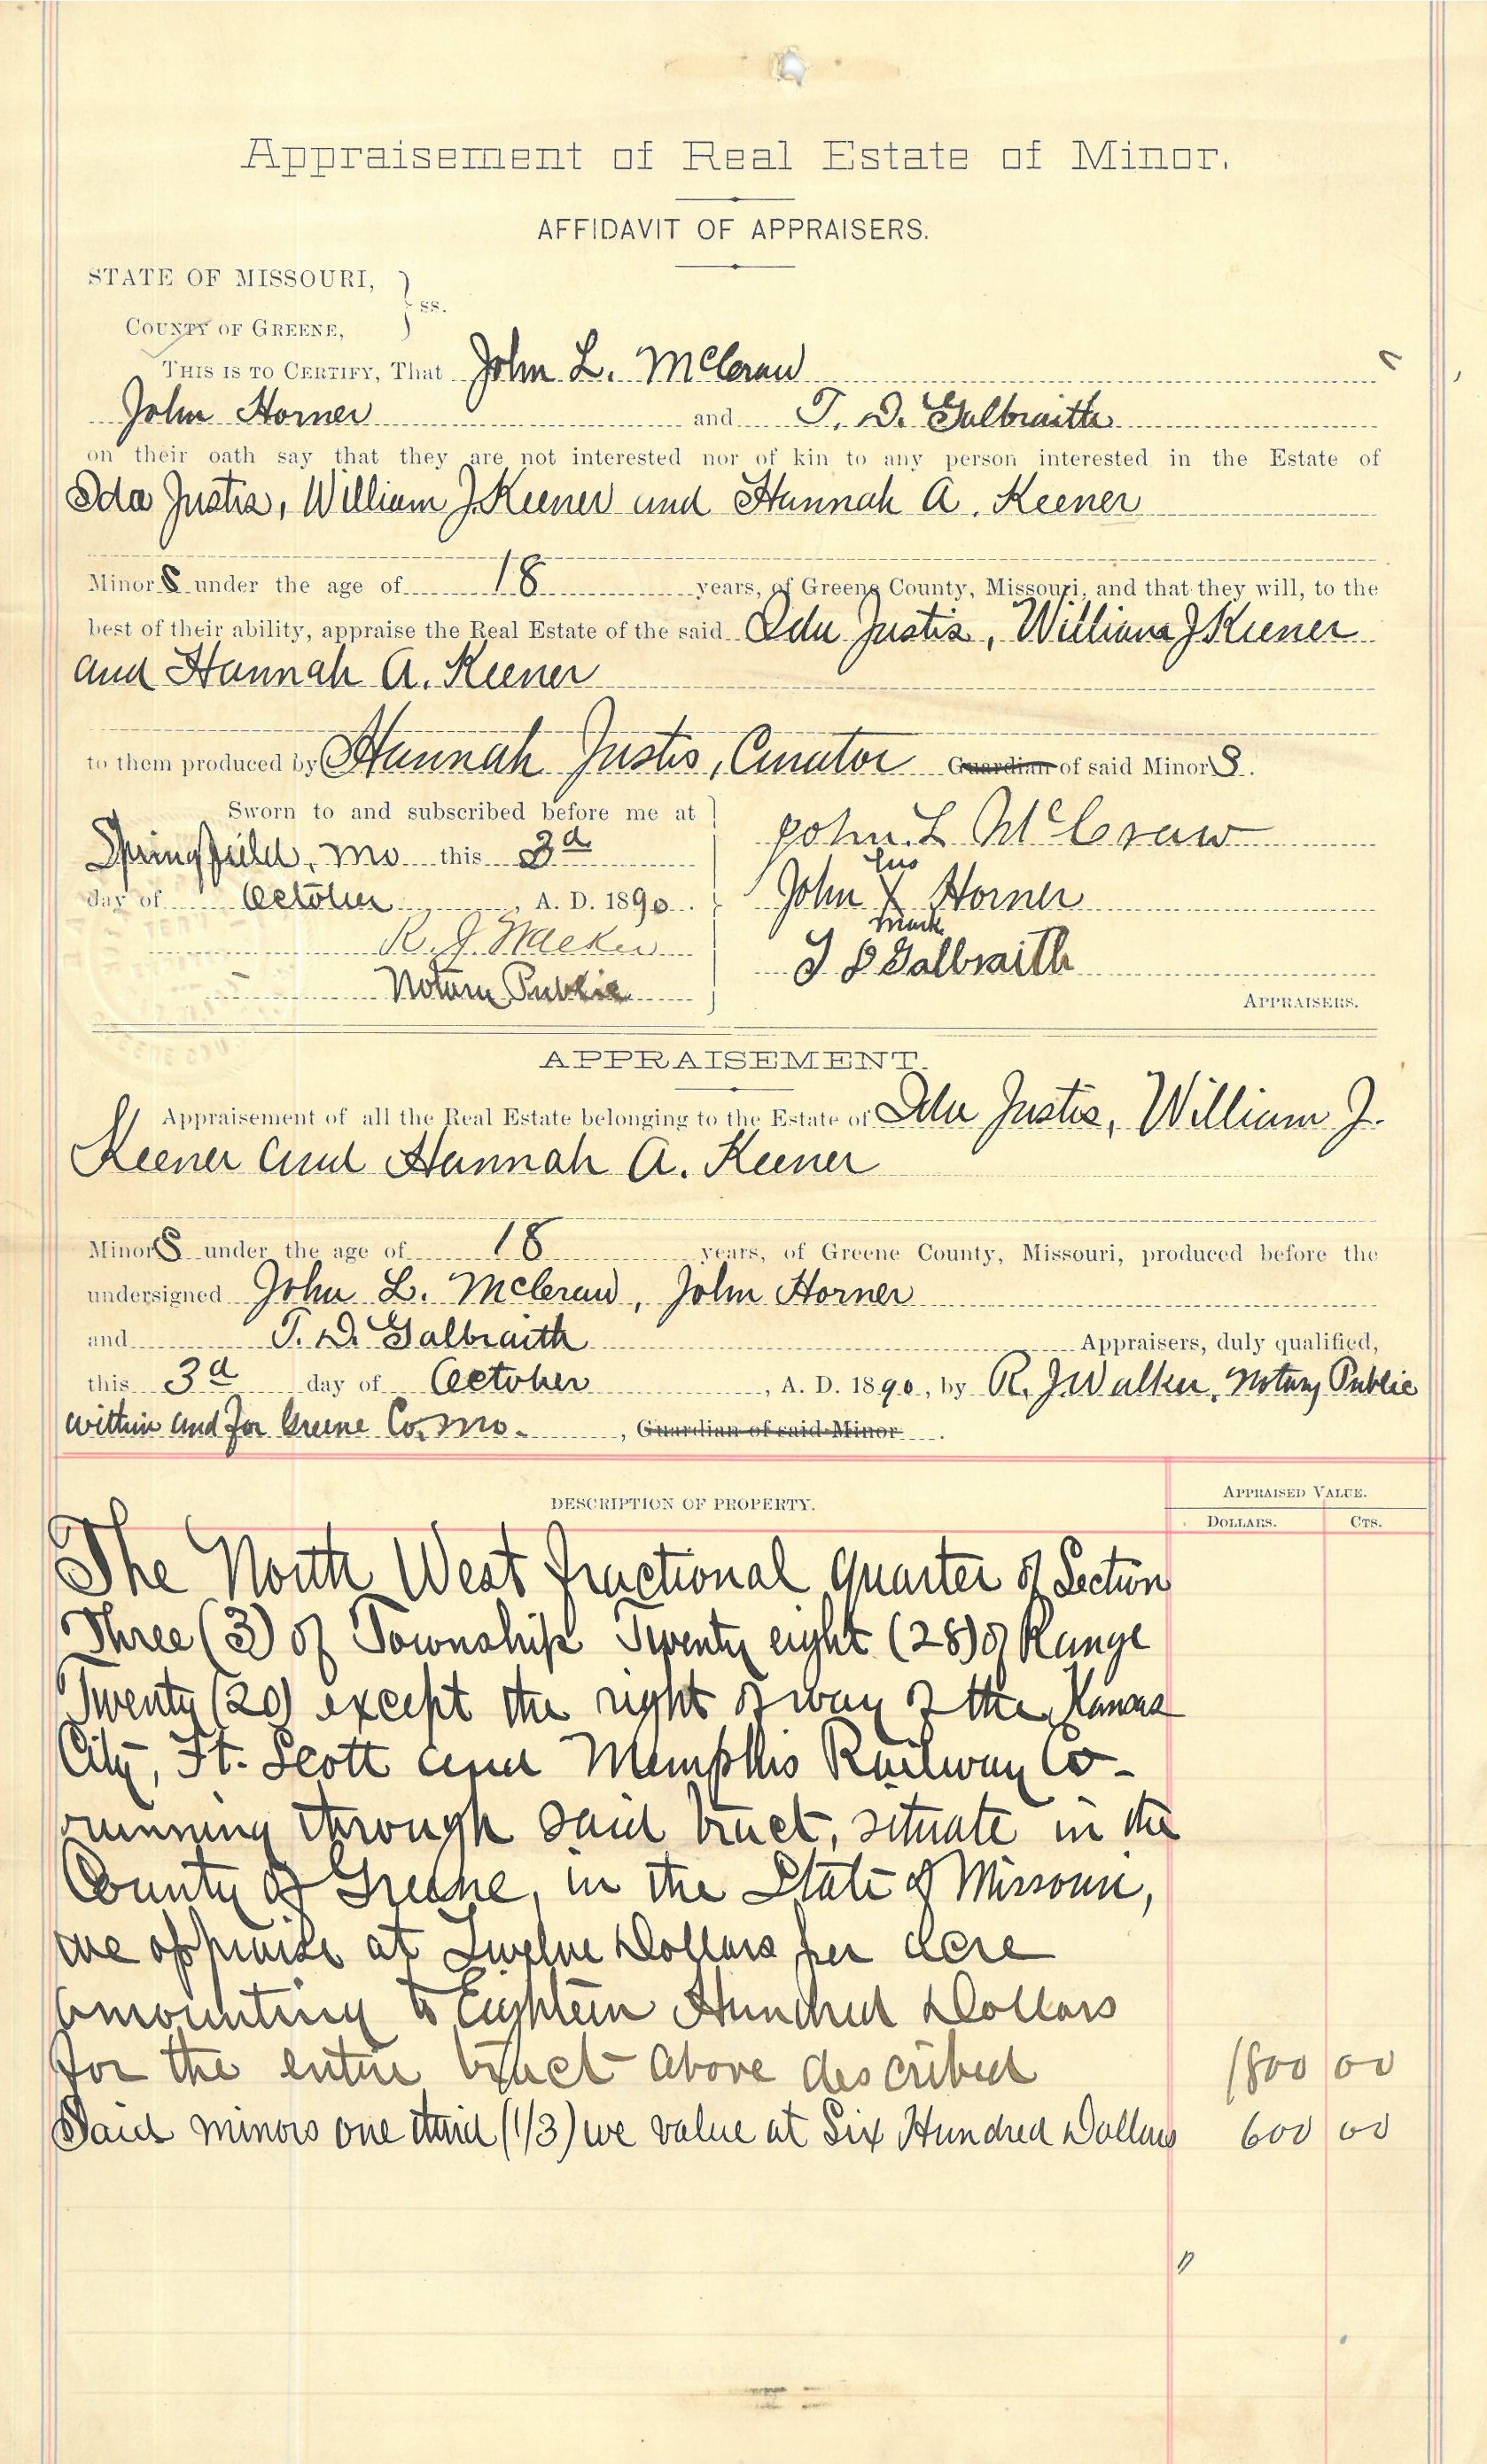 Appraisement of Real Estate of Minor.
AFFIDAVIT OF APPRAISERS.
STATE OF MISSOURI,
ss.
COUNTY OF GREENE,
THIS IS TO CERTIFY, That John L. McCraw
John Horner and T. D. Galbraith
on their oath say that they are not interested nor of kin to any person interested in the Estate of
Ida Justis, William J. Keener and Hannah A. Keener
Minors under the age of 18 years, of Greene County, Missouri, and that they will, to the
best of their ability, appraise the Real Estate of the said Ida Justis, William J Keener
and Hannah A. Keener
to them produced by Hannah Justis, Curator Guardian of said Minors.
Sworn to and subscribed before me at
Springfield, Mo this 3d
day of October, A. D. 1890.
R. J. Walker
Notary Public
John L McCraw
his
John X Horner
mark
T D Galbraith
APPRAISERS.
APPRAISEMENT.
Appraisement of all the Real Estate belonging to the Estate of Ida Justis, William J.
Keener and Hannah A. Keener
Minors under the age of 18 years, of Greene County, Missouri, produced before the
undersigned John L. McCraw, John Horner
and T. D. Galbraith Appraisers, duly qualified,
this 3d day of October, A. D. 1890, by R. J Walker, Notary Public
within and for Greene Co. Mo., Guardian of said Minor.
DESCRIPTION OF PROPERTY.
APPRAISED VALUE.
DOLLARS. CTS.
The North West fractional quarter of Section
Three (3) of Township Twenty eight (28) of Range
Twenty (20) except the right of way of the Kansas
City, Ft. Scott and Memphis Railway Co-
running through said tract, situate in the
County of Greene, in the State of Missouri,
we appraise at Twelve Dollars per acre
amounting to Eighteen Hundred Dollars
for the entire tract above described 1800 00
Said minors one third (1/3) we value at Six Hundred Dollars 600 00